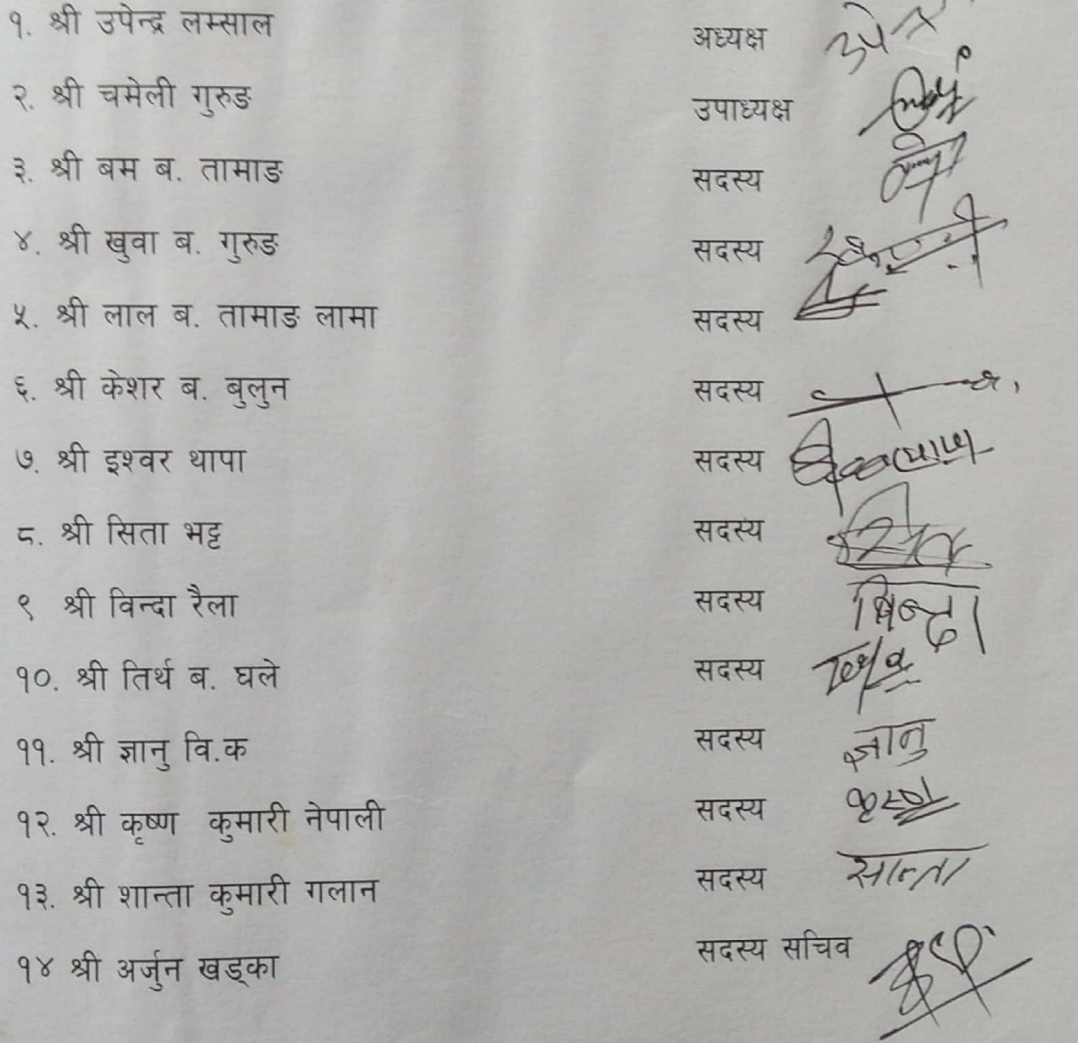 १. श्री उपेन्द्र लम्साल अध्यक्ष
२. श्री चमेली गुरुङ उपाध्यक्ष
३. श्री बम ब. तामाङ सदस्य
४. श्री खुवा ब. गुरुङ सदस्य
५. श्री लाल ब. तामाङ लामा सदस्य
६. श्री केशर ब. बुलुन सदस्य
७. श्री इश्वर थापा सदस्य
८. श्री सिता भट्ट सदस्य
९ श्री विन्दा रैला सदस्य बिन्दा
१०. श्री तिर्थ ब. घले सदस्य
११. श्री ज्ञानु वि.क सदस्य ज्ञानु
१२. श्री कृष्ण कुमारी नेपाली सदस्य
१३. श्री शान्ता कुमारी गलान सदस्य सान्ता
१४ श्री अर्जुन खड्का सदस्य सचिव